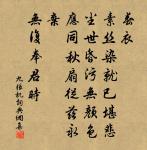 春衣
素絲染就已堪悲
塵世昏污無顏色
應同秋扇從茲永
棄
無復奉君時
九張機詞典網集